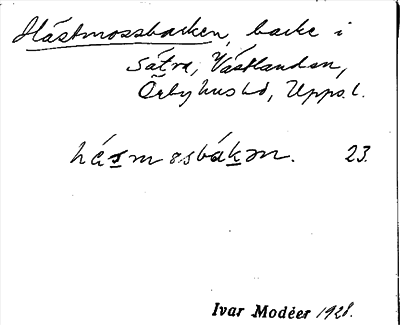 Hästmossbacken, backe i
Sätra, Västlanden,
Örbyhus hd, Upps. l.
hásmosbákən. 23.
Ivar Modéer 1928.